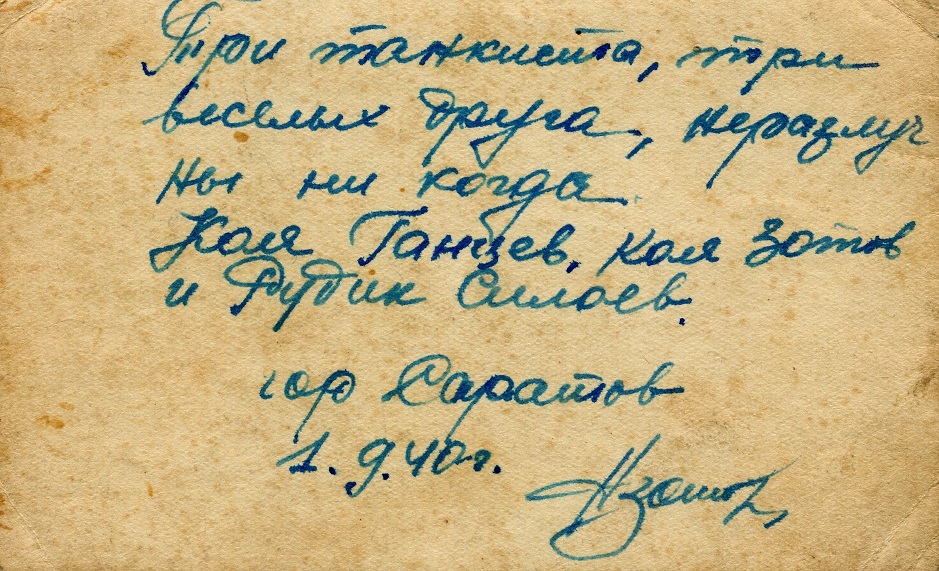 Три танкиста, три
веселых друга, неразлуч
ны ни когда
Коля Ганцев, Коля Зотов
и Рудик Силаев.
гор Саратов
1.9.40г.
НЗотов